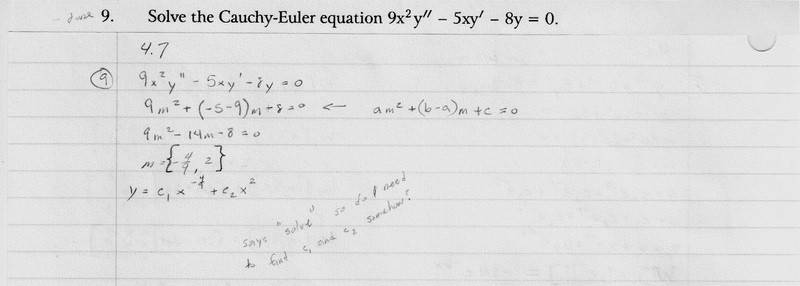 9. Solve the Cauchy-Euler equation 9x²y″ – 5xy′ – 8y = 0.
4.7
9 9x²y" - 5xy' - 8y = 0
9m² + (-5-9)m + 8 = 0 ← am² + (b-a)m + c = 0
9m² - 14m - 8 = 0
m = {-4/9, 2}
y = c₁ x^(-4/9) + c₂x²
says "solve" so do I need
to find c₁ and c₂ somehow?